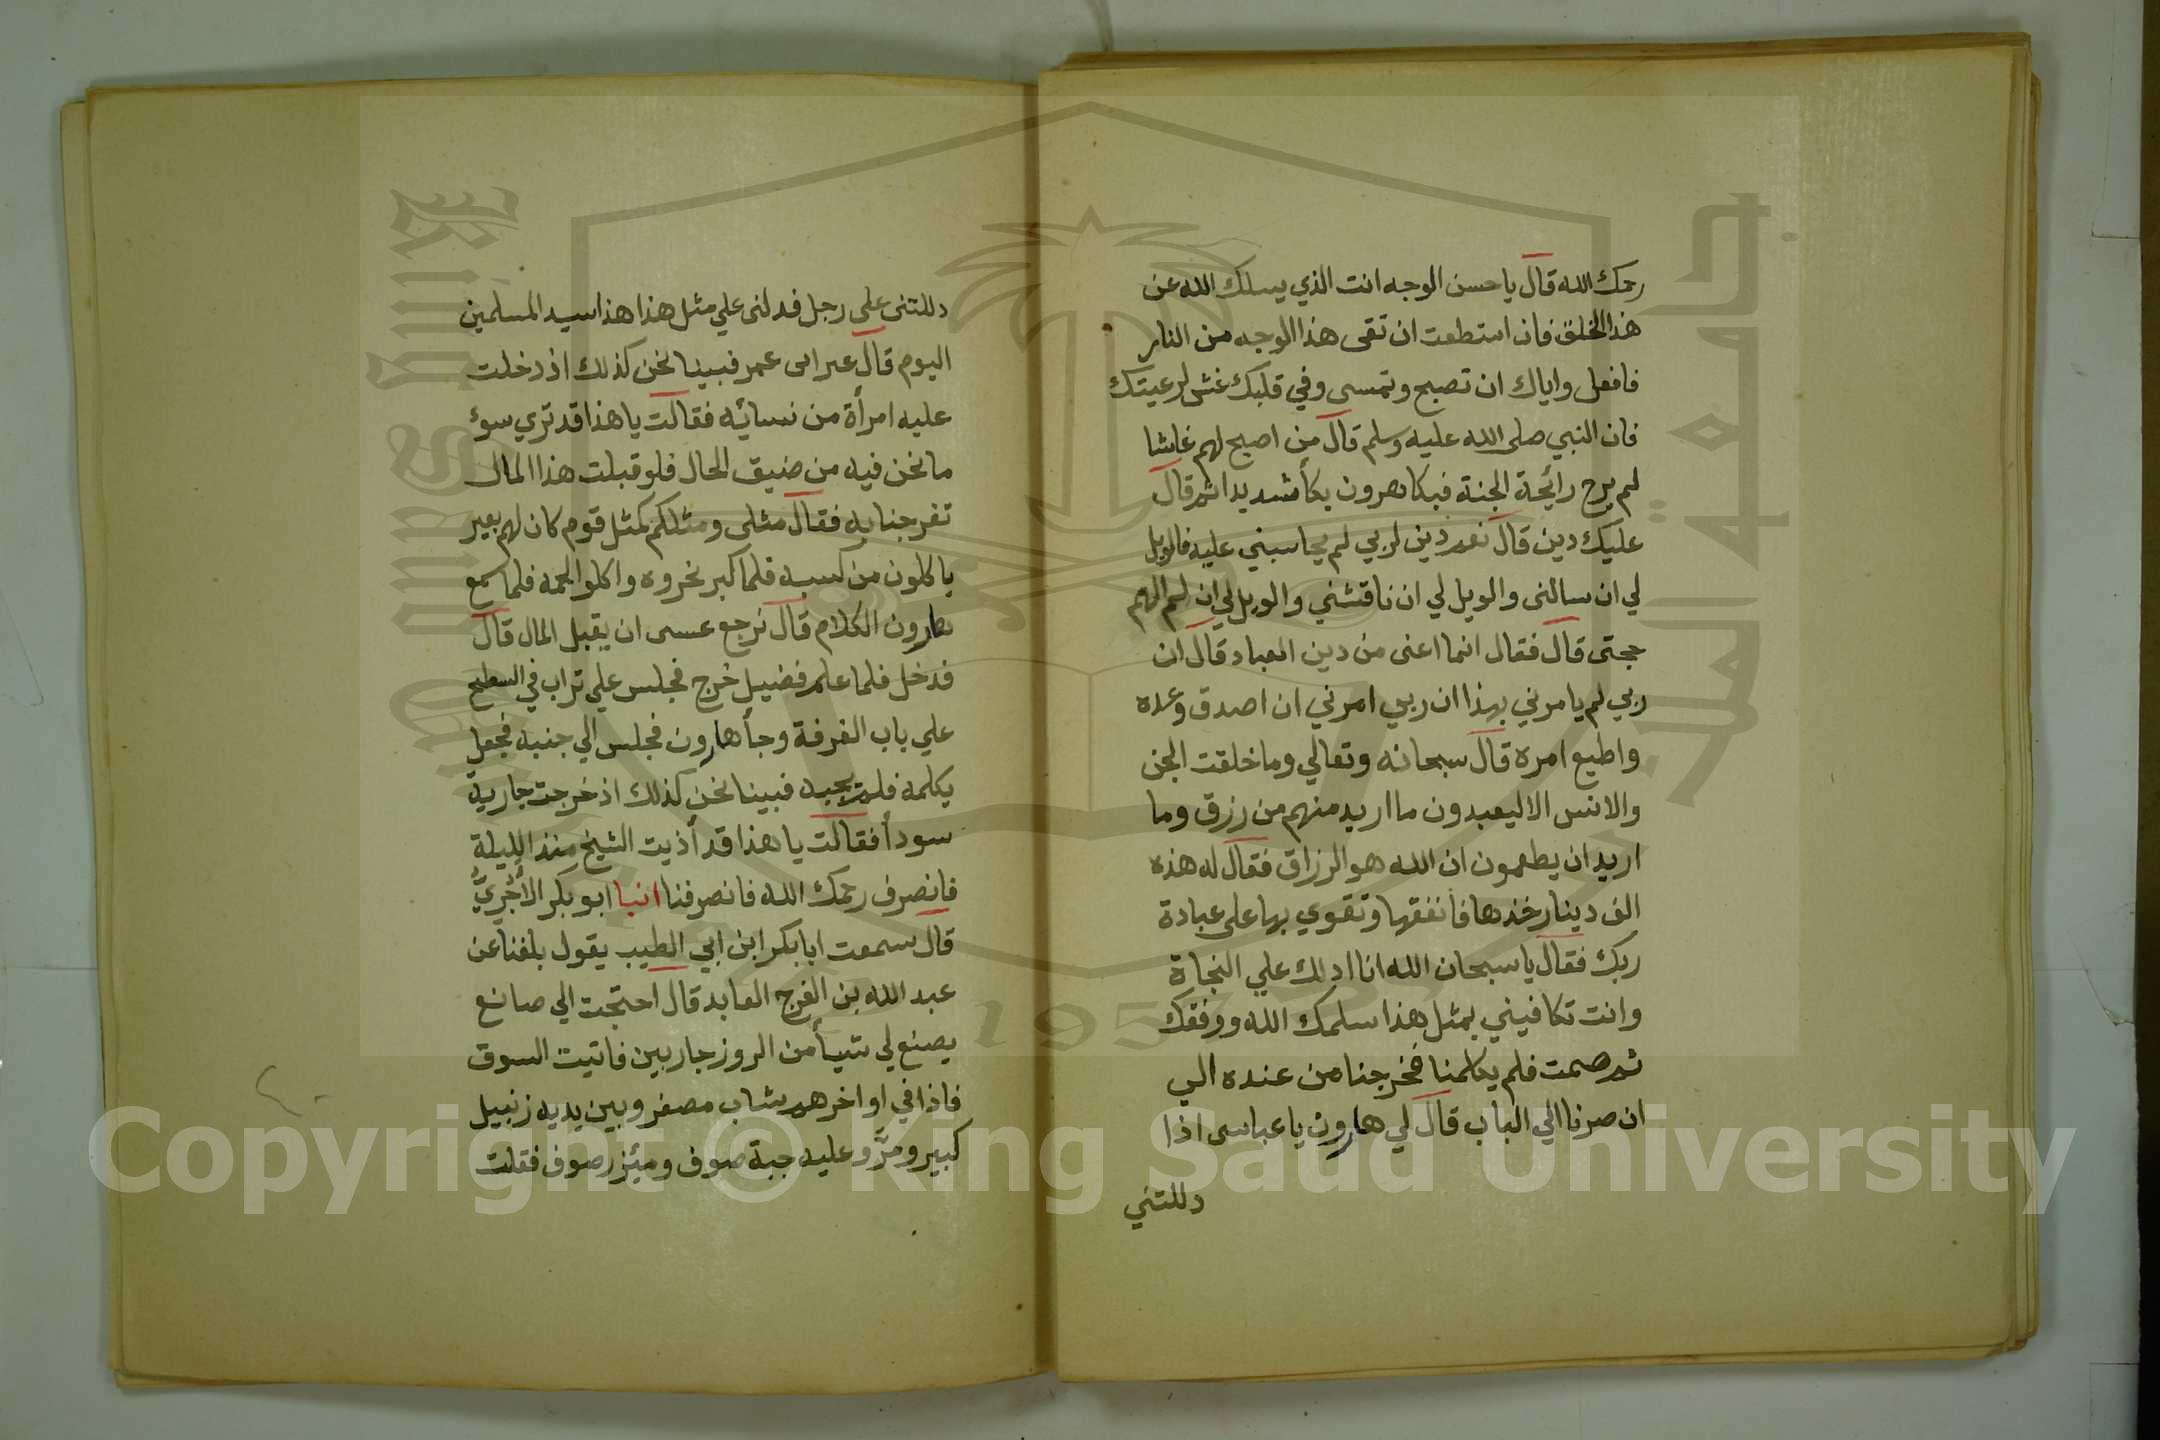 رحمك الله قال يا حسن الوجه انت الذي يسلك الله عن
هذا الخلق فان استطعت ان تقى هذا الوجه من النار
فافعل واياك ان تصبح وتمسى وفي قلبك غش لرعيتك
فان النبي صلى الله عليه وسلم قال من اصبح لهم غاشا
لم يرح رائحة الجنة فبكا هرون بكأ شديدا ثم قال
عليك دين قال نعم دين لربي لم يحاسبني عليه فالويل
لي ان سالنى والويل لي ان ناقشني والويل لي ان لم الهم
حجتى قال فقال انما اعنى من دين العباد قال ان
ربي لم يامرني بهذا ان ربي امرني ان اصدق وعده
واطيع امره قال سبحانه وتعالي وما خلقت الجن
والانس الا ليعبدون ما اريد منهم من رزق وما
اريد ان يطعمون ان الله هو الرزاق فقال له هذه
الف دينار خذها فانفقها وتقوي بها على عبادة
ربك فقال يا سبحان الله انا ادلك علي النجاة
وانت تكافيني بمثل هذا سلمك الله ووفقك
ثم صمت فلم يكلمنا فخرجنا من عنده الي
ان صرنا الي الباب قال لي هارون يا عباسى اذا
دللتني
دللتنى على رجل فدلنى علي مثل هذا هذا سيد المسلمين
اليوم قال غير ابى عمر فبينا نحن كذلك اذ دخلت
عليه امرأة من نسائه فقالت يا هذا قد تري سوء
ما نحن فيه من ضيق الحال فلو قبلت هذا المال
تفرجنا به فقال مثلى ومثلكم كمثل قوم كان لهم بعير
ياكلون من كسبه فلما كبر نحروه واكلوا لحمه فلما سمع
هارون الكلام قال نرجع عسى ان يقبل المال قال
فدخل فلما علم فضيل خرج فجلس علي تراب في السطح
علي باب الغرفة وجأ هارون فجلس الي جنبه فجعل
يكلمه فلم يجبه فبينا نحن كذلك اذ خرجت جارية
سودأ فقالت يا هذا قد أذيت الشيخ منذ الليلة
فانصرف رحمك الله فانصرفنا انبا ابو بكر الأجري
قال سمعت ابا بكر ابن ابي الطيب يقول بلغنا عن
عبد الله بن الفرج العابد قال احتجت الي صانع
يصنع لي شيأ من الروزجاريين فاتيت السوق
فاذا في اواخرهم شاب مصفر وبين يديه زنبيل
كبير ومرّ وعليه جبة صوف ومئزر صوف فقلت
جامعة الملك سعود
King Saud University
1957
Copyright © King Saud University